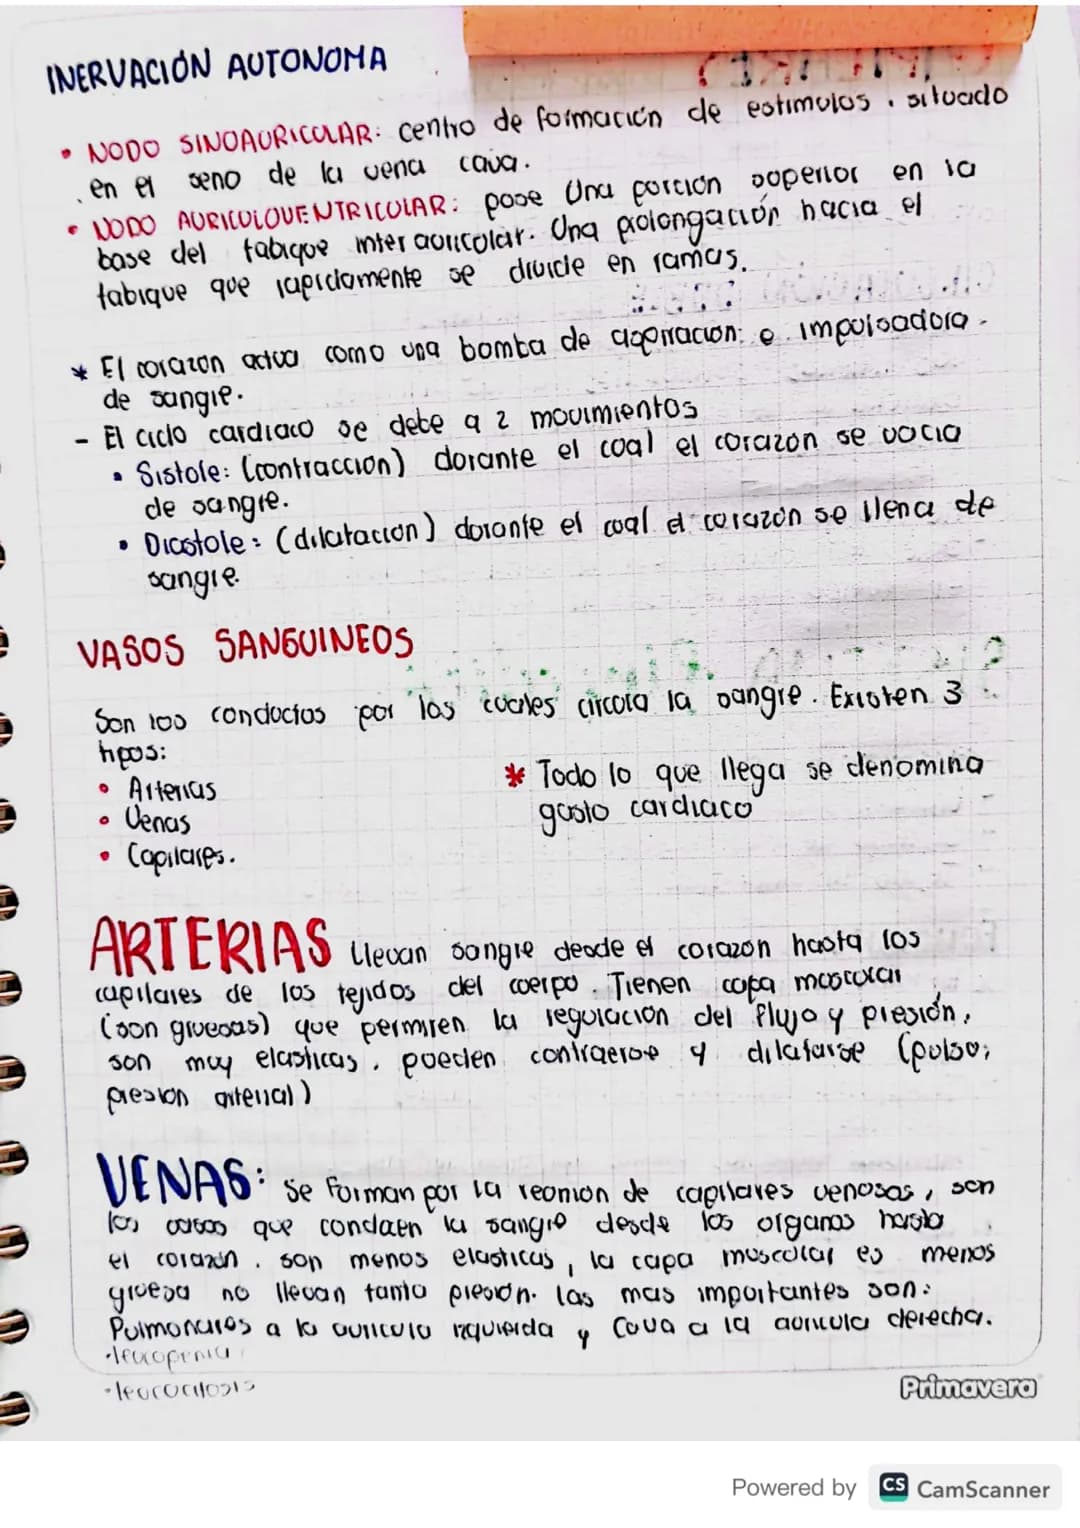 INERVACIÓN AUTONOMA
• NODO SINOAURICULAR: centro de formación de estimulos. situado
en el seno de la vena cava.
• NODO AURICULOVENTRICULAR: pose Una porción soperior en la
base del tabique inter auricolar. Una prolongación hacia el
tabique que rapidamente se divide en ramas.
* El corazon actua como una bomba de aspiracion: e impulsadora.
de sangre.
- El ciclo cardiaco se debe a 2 movimientos
• Sistole: (contraccion) dorante el coal el corazon se vocia
de sangre.
• Diastole: (dilatacion) dorante el coal el corazón se llena de
sangre.
VASOS SANGUINEOS
Son los conductos por los cuales circola la sangre. Existen 3
tipos:
• Arterias
• Venas
• Capilares.
* Todo lo que llega se denomina
gasto cardiaco
ARTERIAS llevan sangre desde el corazon hasta los
capilares de los tejidos del coerpo. Tienen capa moscular
(son gruesas) que permiten la regulacion del flujo y presión,
son muy elasticas, pueden contraerse y dilatarse (pulso;
presion arterial)
VENAS: Se forman por la reonion de capilares venosas, son
los vasos que condaen la sangre desde los organos hasta
el corazón. son menos elasticas, la capa moscolar es menos
gruesa no llevan tanta presion. las mas importantes son:
Pulmonares a la auricula izquierda y Cava a la auricula derecha.
•leucopenia
•leucocitosis
Primavera
Powered by CS CamScanner